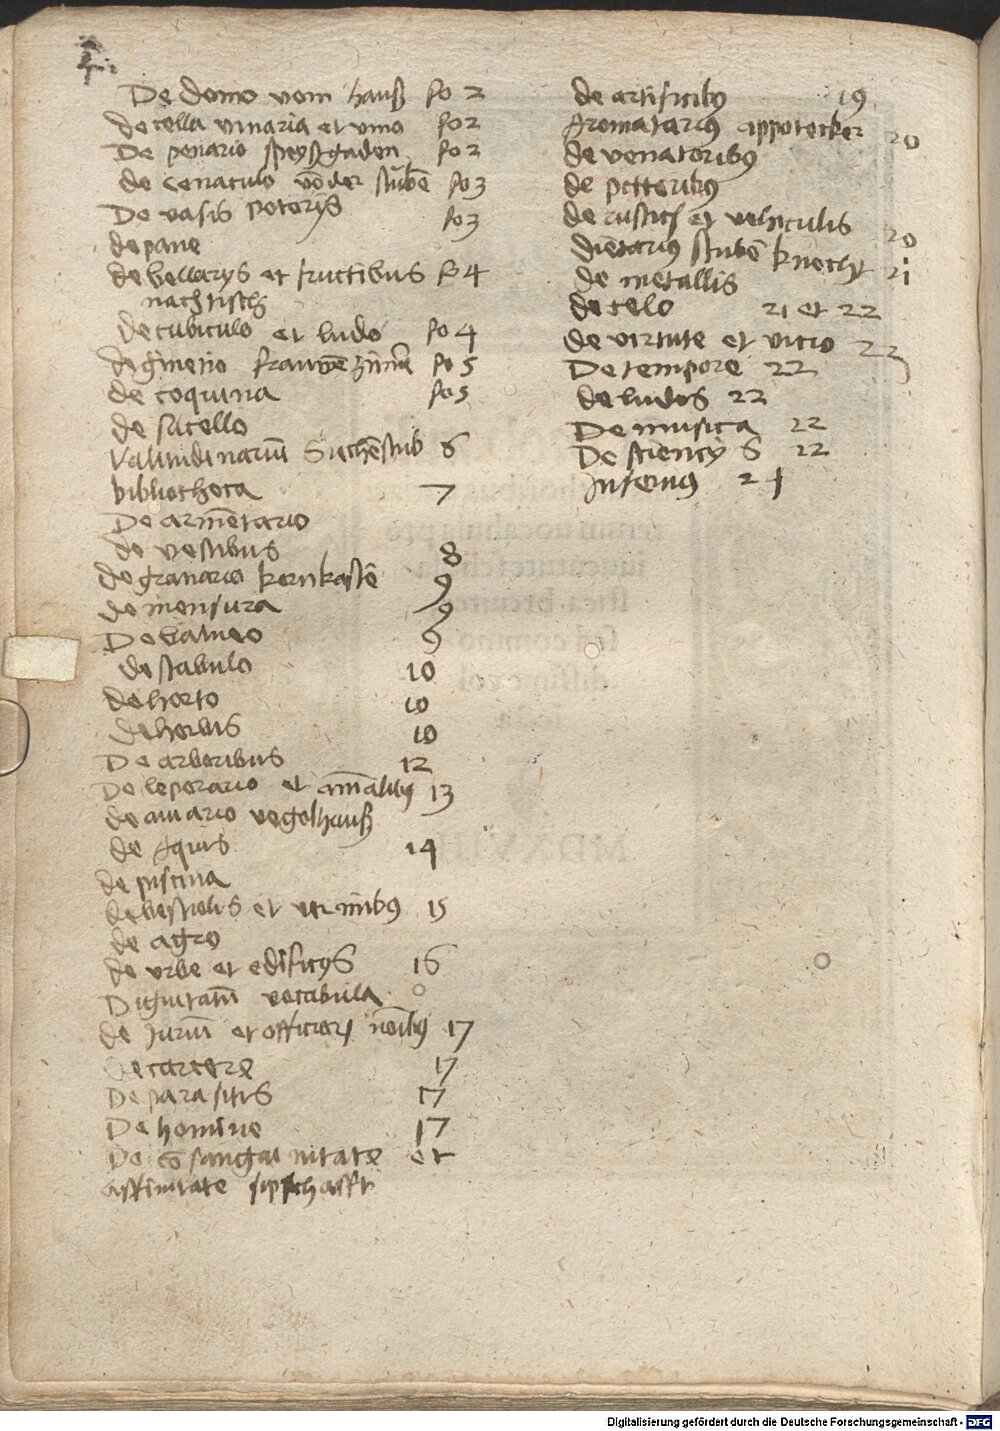 De domo vom hauß fo 2
de cella vinaria et vino fo 2
De penario speyßgaden fo 2
de cenaculo võ der stubē fo 3
De vasis potorijs fo 3
de pane
de bellarijs et fructibus fo 4
nachtisch
de cubiculo et lecto fo 4
de gineceo frauwē fo 5
de coquina fo 5
de sacello
valitudinariū Sichēstub 6
bibliotheca 7
De armētario
de vestibus 8
de granario kornkastē 9
de mensura 9
De balneo 9
de stabulo 10
de horto 10
de herbis 10
De arboribus 12
De leporario et 13
de auiario vogelhauß
de Aquis 14
de piscina
de bestiolis et vermibꝰ 15
de agro
de vrbe et edificijs 16
Dignitatū vocabula
de et officiorū 17
De carcere 17
De parasitis 17
De homine 17
De cōsanguinitate et
affinitate sipschafft
de artificibꝰ 19
Aromatariꝰ appotecker 20
de venatoribꝰ
de pictoribꝰ
de rusticis et vehiculis 20
Dietariꝰ stubē knecht 21
de metallis
de celo 21 et 22
de virtute et vitio 22
De tempore 22
de ludis 22
De musica 22
De sciencijs 22
Infernꝰ 24
MDXVIII
Digitalisierung gefördert durch die Deutsche Forschungsgemeinschaft - DFG